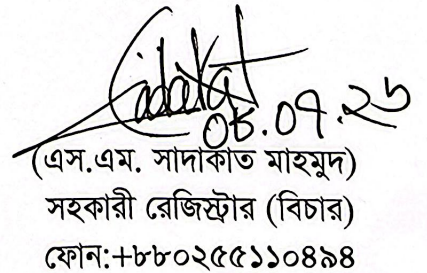 ০৮.০৭.২৬
(এস.এম. সাদাকাত মাহমুদ)
সহকারী রেজিস্ট্রার (বিচার)
ফোন:+৮৮০২৫৫১১০৪৯৪